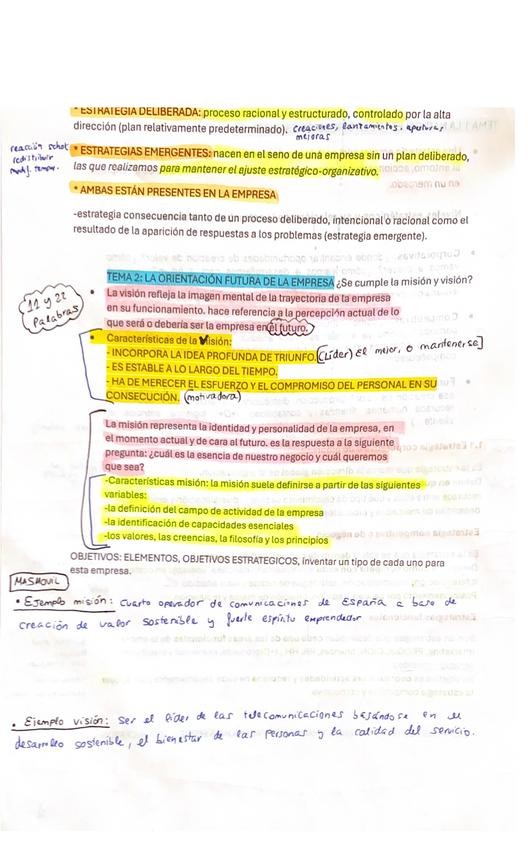 * ESTRATEGIA DELIBERADA: proceso racional y estructurado, controlado por la alta
dirección (plan relativamente predeterminado). creaciones, lanzamientos, apertura,
mejoras
reacción
redistribuir
* ESTRATEGIAS EMERGENTES: nacen en el seno de una empresa sin un plan deliberado,
las que realizamos para mantener el ajuste estratégico-organizativo.
* AMBAS ESTÁN PRESENTES EN LA EMPRESA
-estrategia consecuencia tanto de un proceso deliberado, intencional o racional como el
resultado de la aparición de respuestas a los problemas (estrategia emergente).
TEMA 2: LA ORIENTACIÓN FUTURA DE LA EMPRESA ¿Se cumple la misión y visión?
11 y 22
Palabras
• La visión refleja la imagen mental de la trayectoria de la empresa
en su funcionamiento. hace referencia a la percepción actual de lo
que será o debería ser la empresa en el futuro.
• Características de la Visión:
- INCORPORA LA IDEA PROFUNDA DE TRIUNFO. [(Líder) el mejor, o mantenerse]
- ES ESTABLE A LO LARGO DEL TIEMPO.
- HA DE MERECER EL ESFUERZO Y EL COMPROMISO DEL PERSONAL EN SU
CONSECUCIÓN. (motivadora)
La misión representa la identidad y personalidad de la empresa, en
el momento actual y de cara al futuro. es la respuesta a la siguiente
pregunta: ¿cuál es la esencia de nuestro negocio y cuál queremos
que sea?
-Características misión: la misión suele definirse a partir de las siguientes
variables:
-la definición del campo de actividad de la empresa
-la identificación de capacidades esenciales
-los valores, las creencias, la filosofía y los principios
OBJETIVOS: ELEMENTOS, OBJETIVOS ESTRATEGICOS, inventar un tipo de cada uno para
esta empresa.
MASMOVIL
• Ejemplo misión: Cuarto operador de comunicaciones de España a base de
creación de valor sostenible y fuerte espíritu emprendedor
• Ejemplo visión: Ser el líder de las telecomunicaciones basándose en el
desarrollo sostenible, el bienestar de las personas y la calidad del servicio.